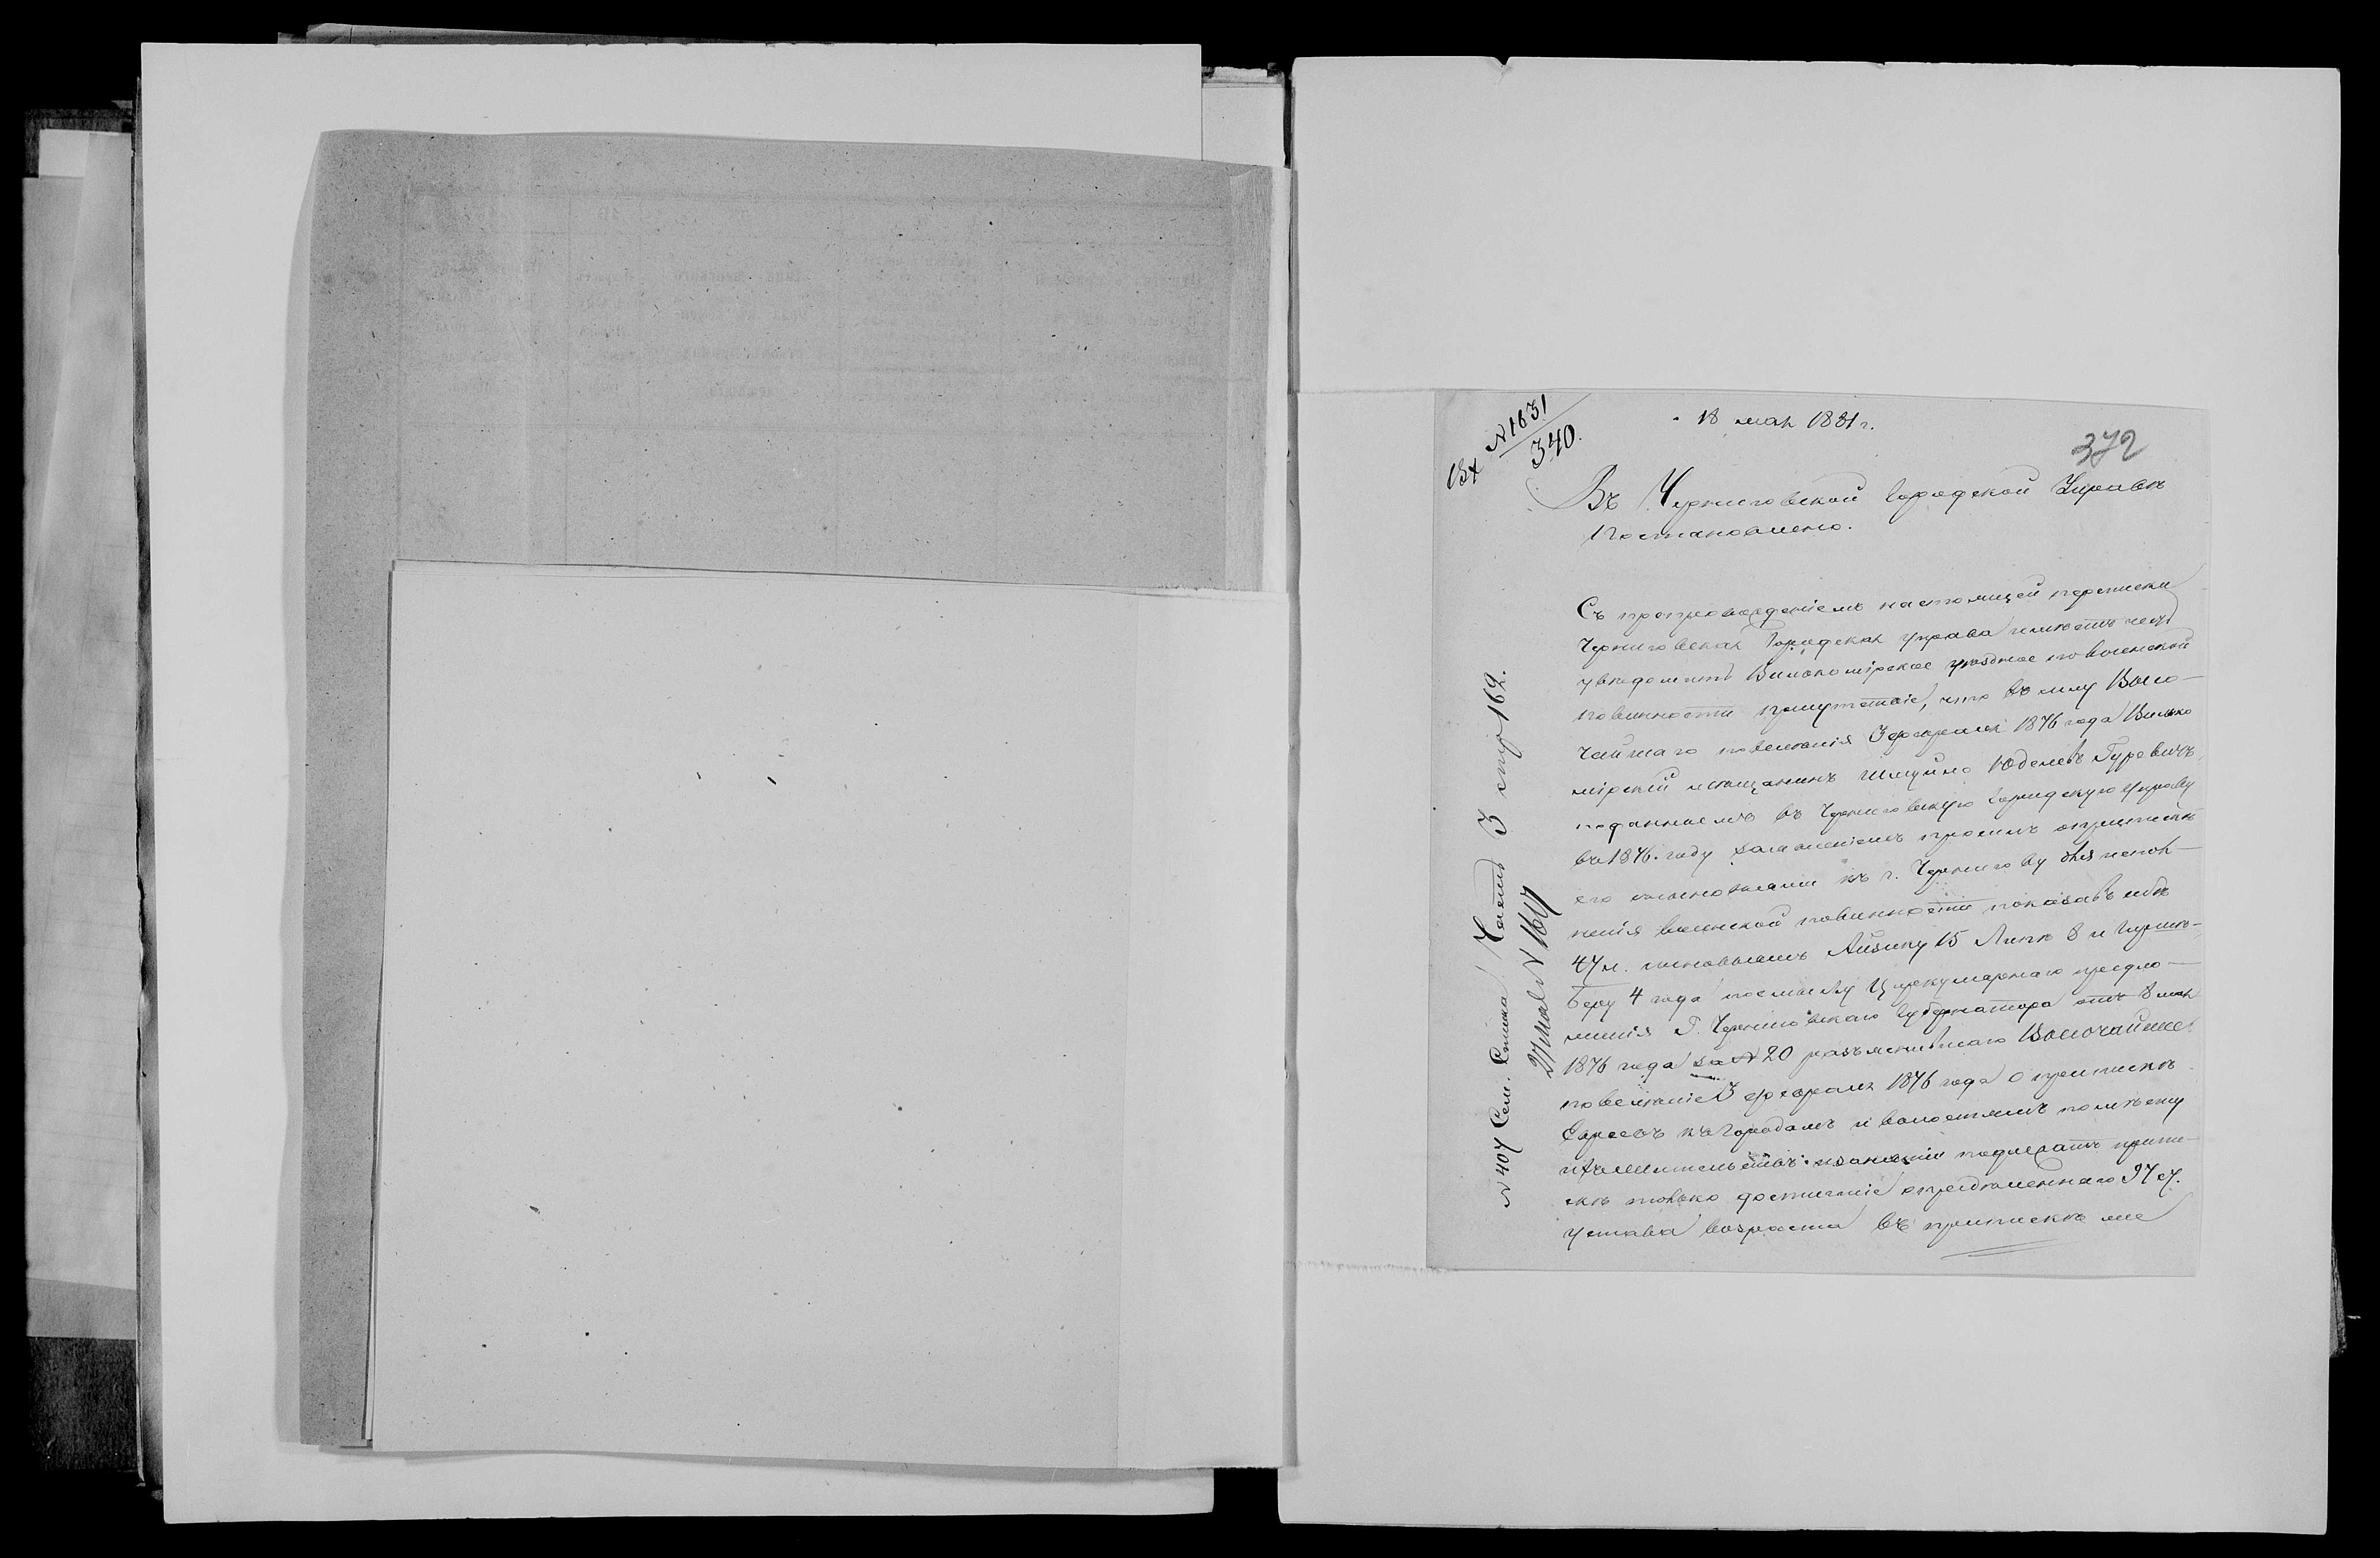 Вх № 1631
340.
18 мая 1881 г.
372
Въ Черниговской Городской Управѣ
Постановлено.
Съ препровожденіемъ настоящей переписки
Черниговская Городская Управа имѣетъ честь
увѣдомить Вилькомірское уѣздное по воинской
повинности присутствіе, что въ силу Высо-
чайшаго повелѣнія 3 февраля 1876 года Вилько
мірскій мѣщанинъ Шмуйло Юделевъ Гуревичъ,
поданнымъ въ Черниговскую Городскую Управу
въ 1876 году заявленіемъ просилъ о припискѣ
его съ сыновьями къ г. Чернигову для испол-
ненія воинской повинности показавъ себѣ
47 л. сыновьямъ Айзику 15 Липѣ 8 и Гиршъ-
Беру 4 года посилѣ Циркулярнаго предло-
женія Г. Черниговскаго Губернатора отъ 8 мая
1876 года за № 20 разъяснившаго Высочайшее
повелѣніе 3 февраля 1876 года о припискѣ
Евреевъ къ городамъ и волостямъ по мѣсту
ихъ жительства: подлежатъ припи-
скѣ только достигшіе опредѣленнаго 97 ст.
Устава возраста въ припискѣ же
№ 407 Сем. Списка Часть 3 стр 162.
27 мая № 1604